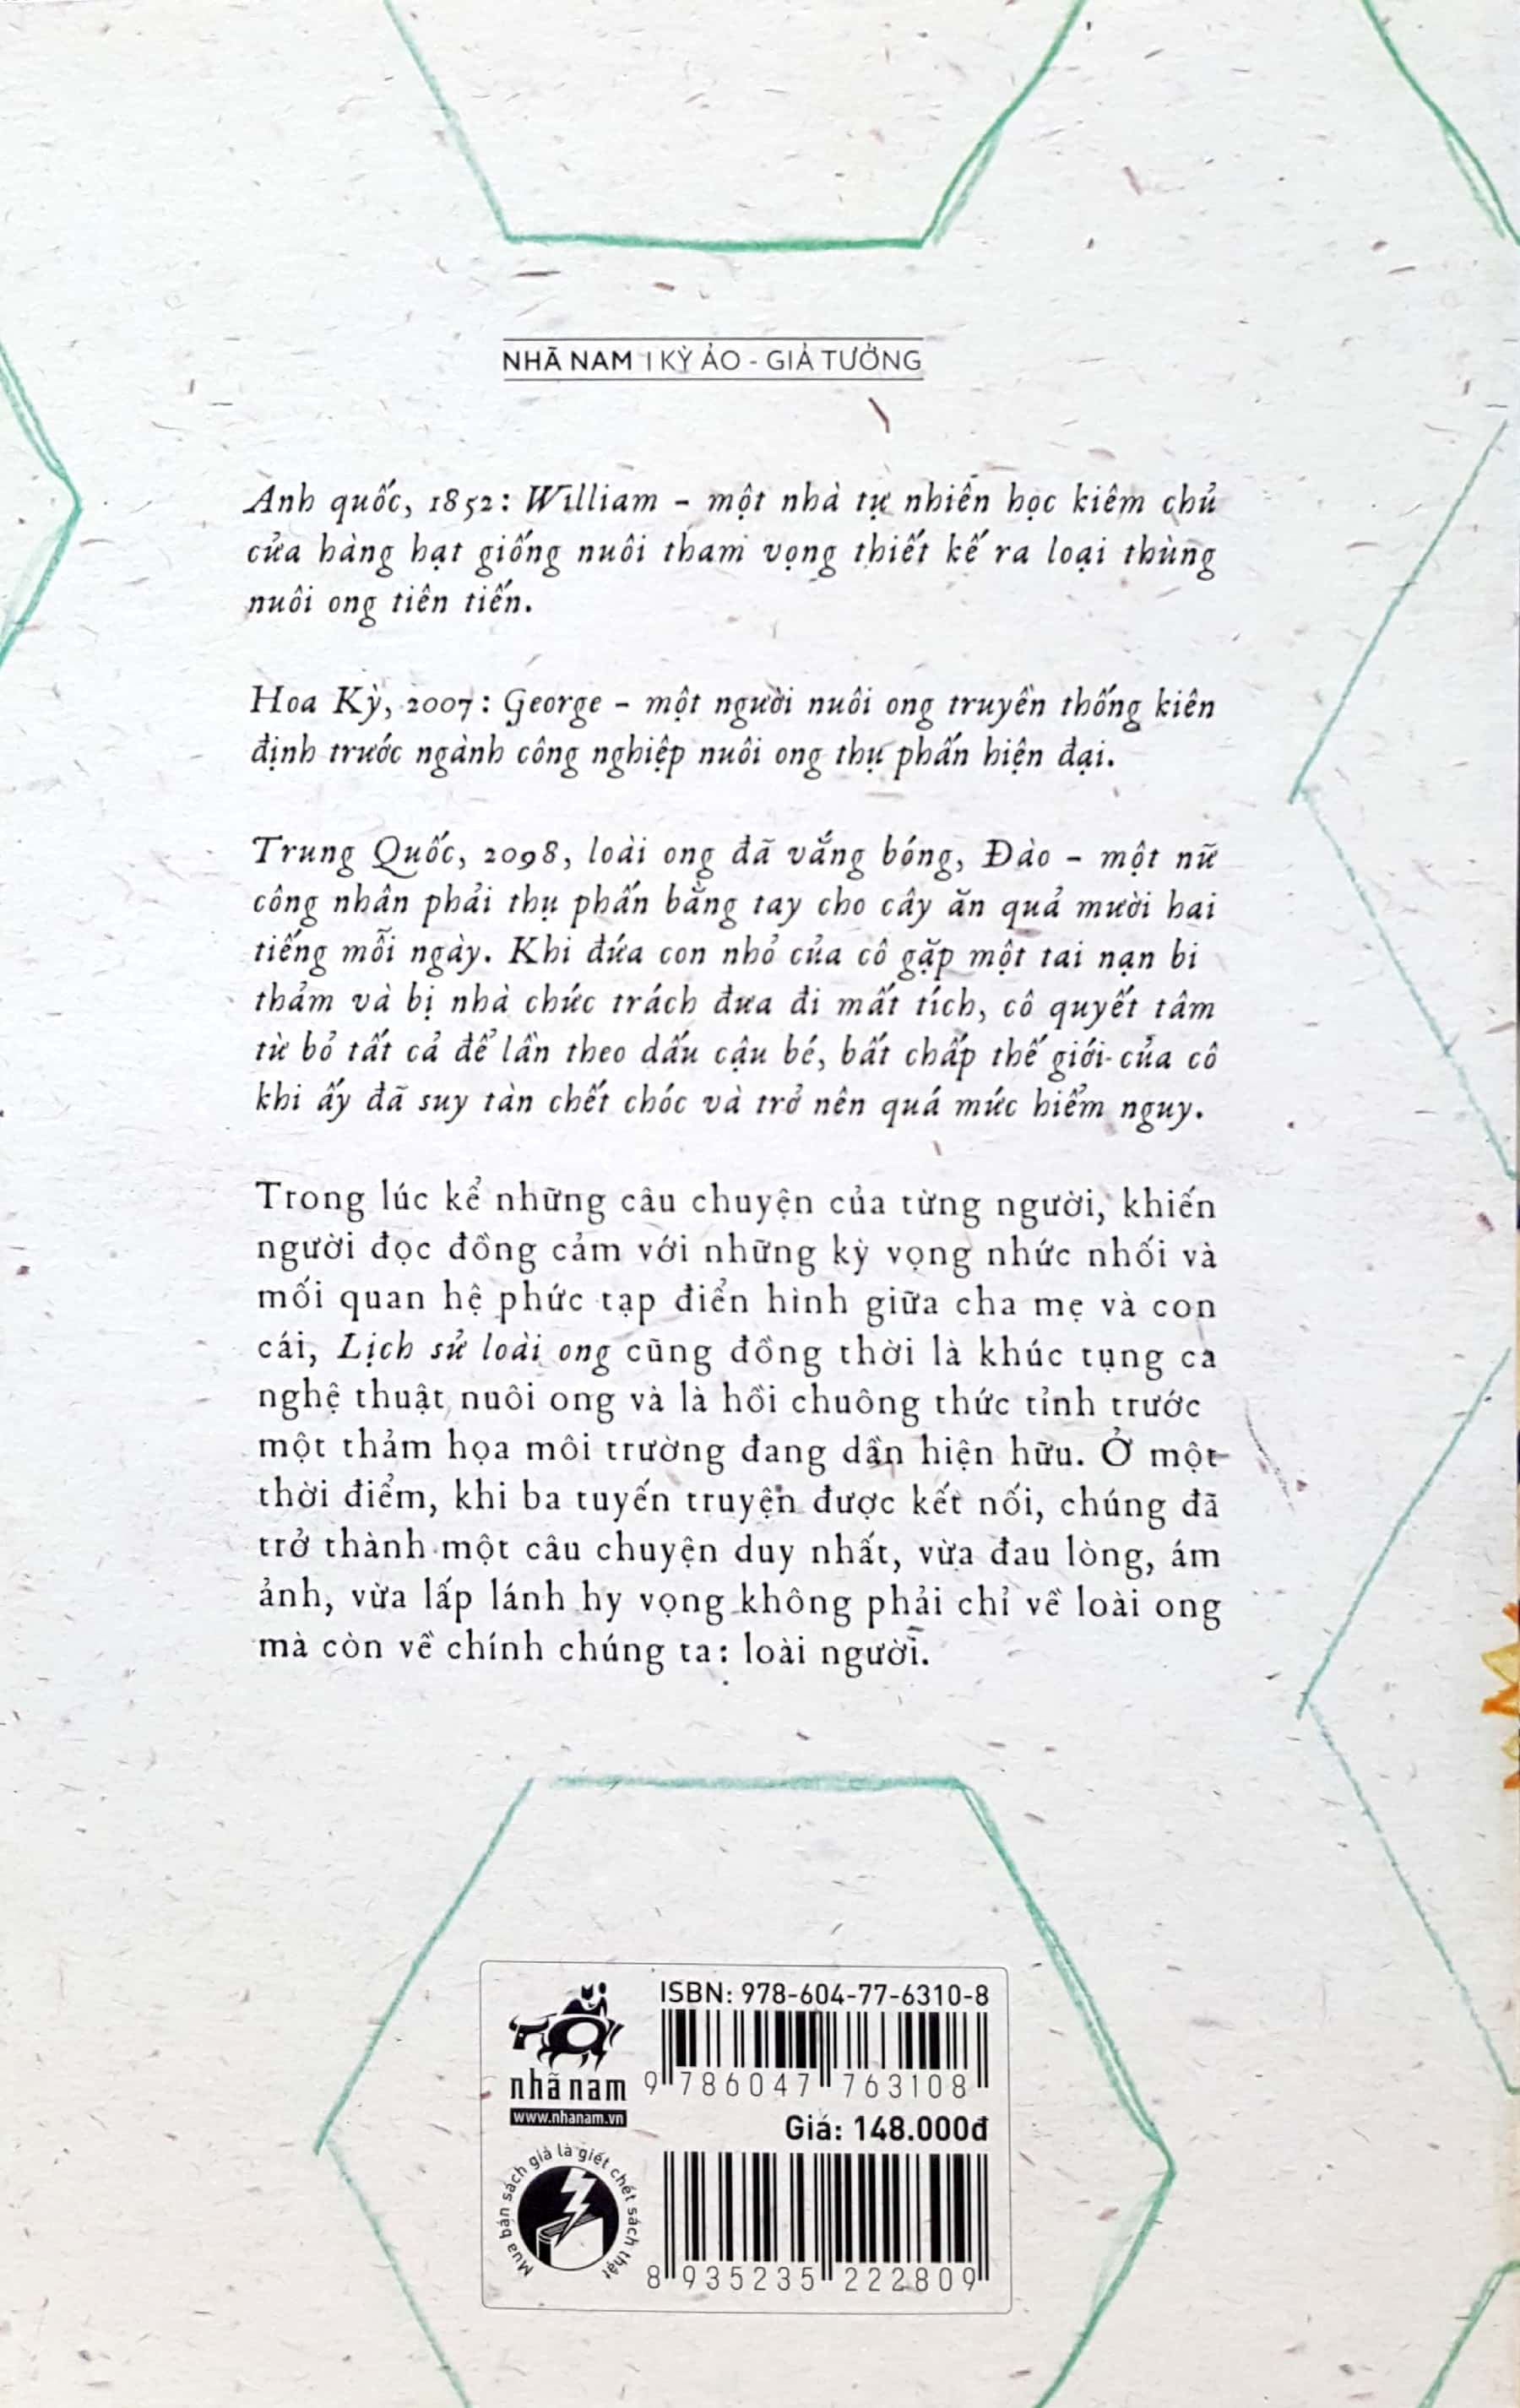 NHÃ NAM | KỲ ẢO - GIẢ TƯỞNG
Anh quốc, 1852: William – một nhà tự nhiên học kiêm chủ
cửa hàng hạt giống nuôi tham vọng thiết kế ra loại thùng
nuôi ong tiên tiến.
Hoa Kỳ, 2007: George – một người nuôi ong truyền thống kiên
định trước ngành công nghiệp nuôi ong thụ phấn hiện đại.
Trung Quốc, 2098, loài ong đã vắng bóng, Đào – một nữ
công nhân phải thụ phấn bằng tay cho cây ăn quả mười hai
tiếng mỗi ngày. Khi đứa con nhỏ của cô gặp một tai nạn bi
thảm và bị nhà chức trách đưa đi mất tích, cô quyết tâm
từ bỏ tất cả để lần theo dấu cậu bé, bất chấp thế giới của cô
khi ấy đã suy tàn chết chóc và trở nên quá mức hiểm nguy.
Trong lúc kể những câu chuyện của từng người, khiến
người đọc đồng cảm với những kỳ vọng nhức nhối và
mối quan hệ phức tạp điển hình giữa cha mẹ và con
cái, Lịch sử loài ong cũng đồng thời là khúc tụng ca
nghệ thuật nuôi ong và là hồi chuông thức tỉnh trước
một thảm họa môi trường đang dần hiện hữu. Ở một
thời điểm, khi ba tuyến truyện được kết nối, chúng đã
trở thành một câu chuyện duy nhất, vừa đau lòng, ám
ảnh, vừa lấp lánh hy vọng không phải chỉ về loài ong
mà còn về chính chúng ta: loài người.
ISBN: 978-604-77-6310-8
9 786047 763108
nhã nam
www.nhanam.vn
Giá: 148.000đ
Mua bán sách giả là giết chết sách thật
8 935235 222809